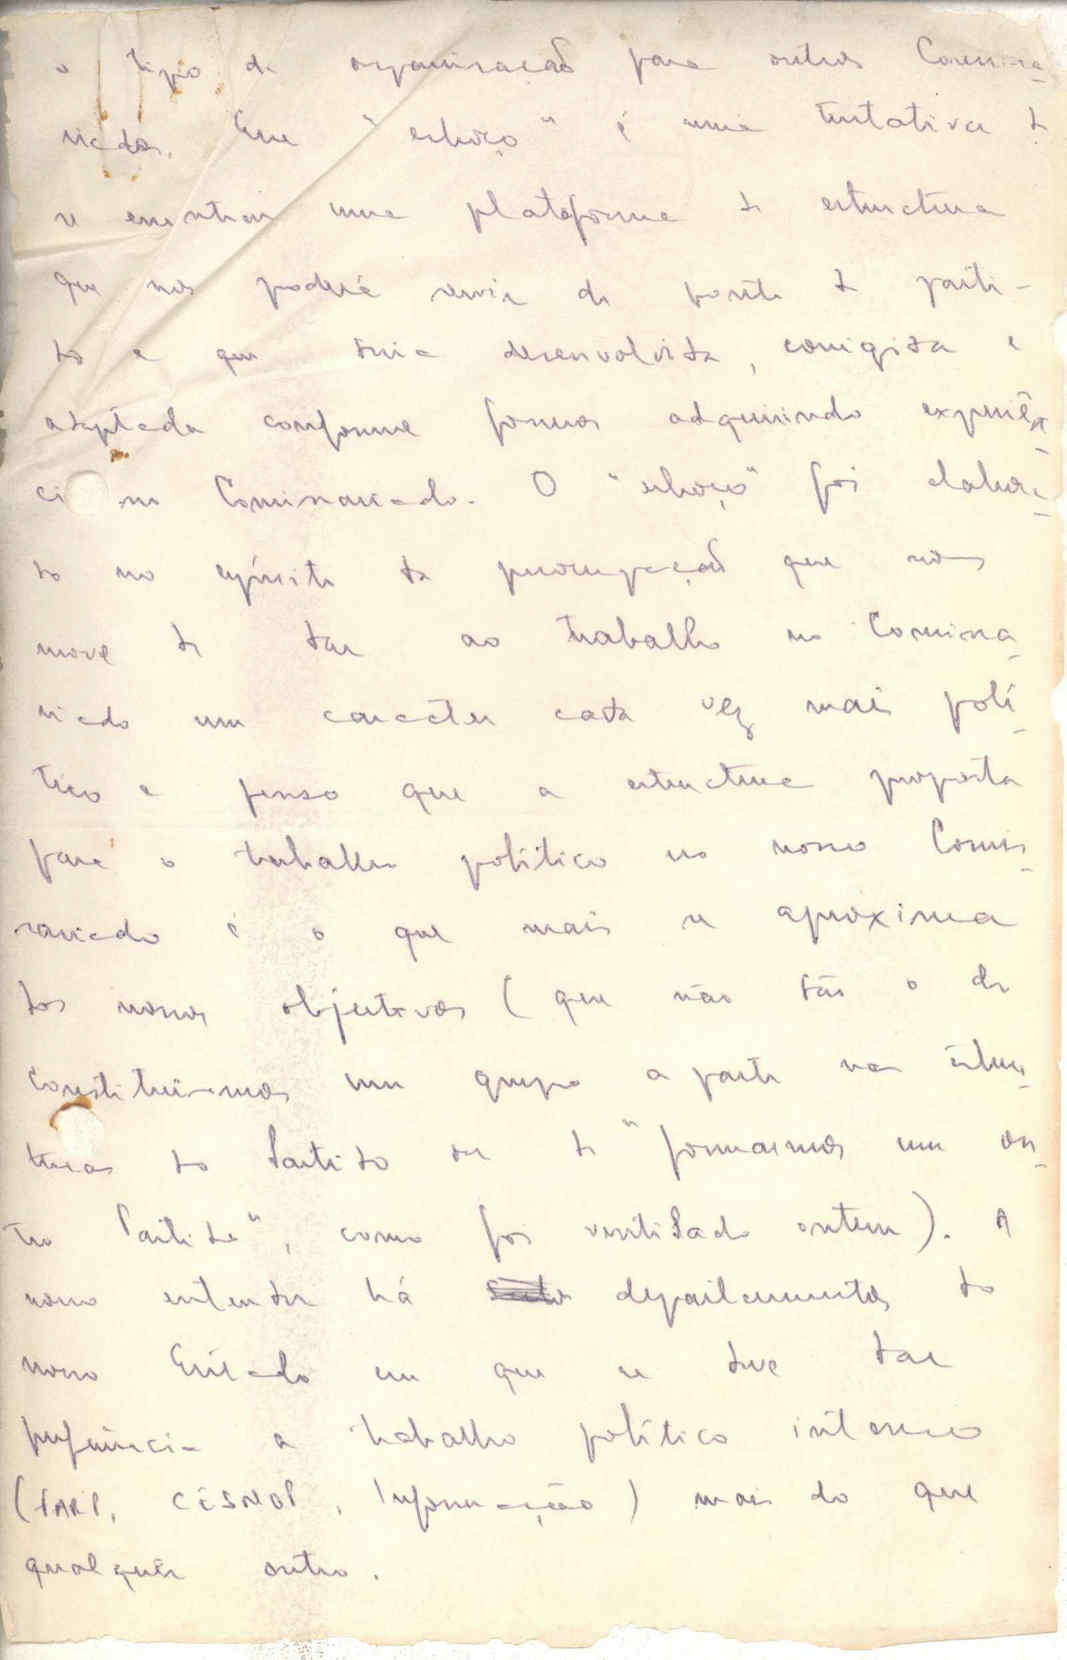 o tipo de organização para outros Comissa
riados. Esse "esboço" é uma tentativa de
se encontrar uma plataforma de estructura
que nos poderá servir de ponto de parti-
da e que seria desenvolvida, corrigida e
adaptada conforme formos adquirindo experiên
cia no Comissariado. O "esboço" foi elabora
do no espírito da preocupação que nos
move de dar ao trabalho no Comissa
riado um carácter cada vez mais polí
tico e penso que a estructura proposta
para o trabalho político no nosso Comis
sariado é o que mais se aproxima
dos nossos objectivos (que não são o de
constituirmos um grupo a parte nas estru
turas do Partido ou de "formarmos um ou
tro Partido", como foi ventilado ontem). A
nosso entender há departamentos do
nosso Estado em que se deve dar
preferência a trabalho político intenso
(FARP, CÉSNOP, Informação) mais do que
qualquer outro.